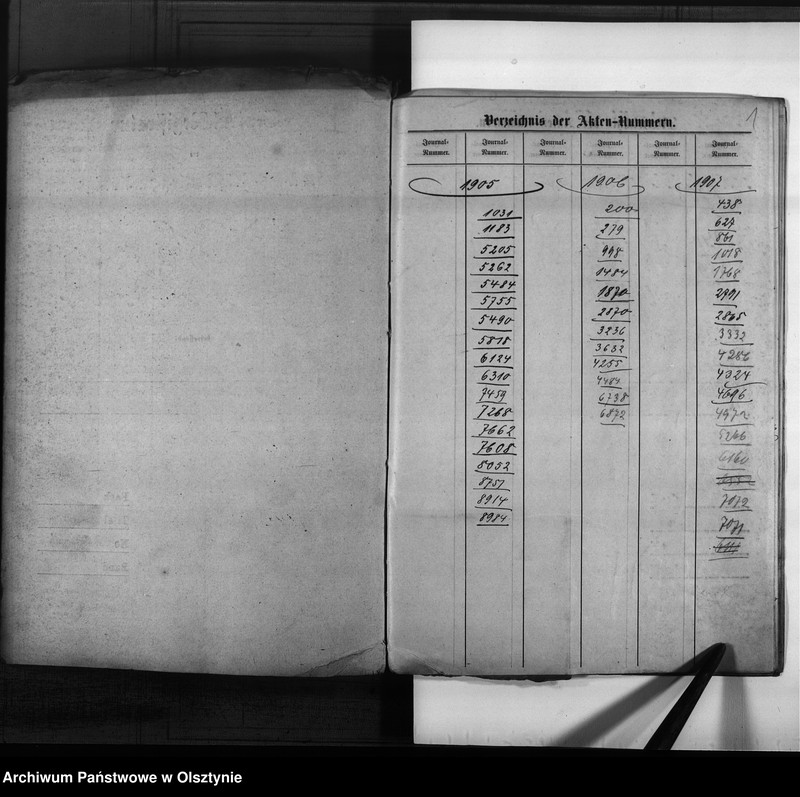 1
Verzeichnis der Akten-Nummern.
Journal-Nummer.
Journal-Nummer.
Journal-Nummer.
Journal-Nummer.
Journal-Nummer.
Journal-Nummer.
1905
1031
1183
5205
5262
5484
5755
5490
5818
6124
6310
7459
7268
7662
7608
8052
8757
8914
8984
1906
200
279
998
1484
1870
2870
3236
3632
4255
4484
6738
6872
1907
438
627
861
1018
1768
2991
2865
3332
4286
4324
4696
4972
5266
6160
7072
7071
Archiwum Państwowe w Olsztynie